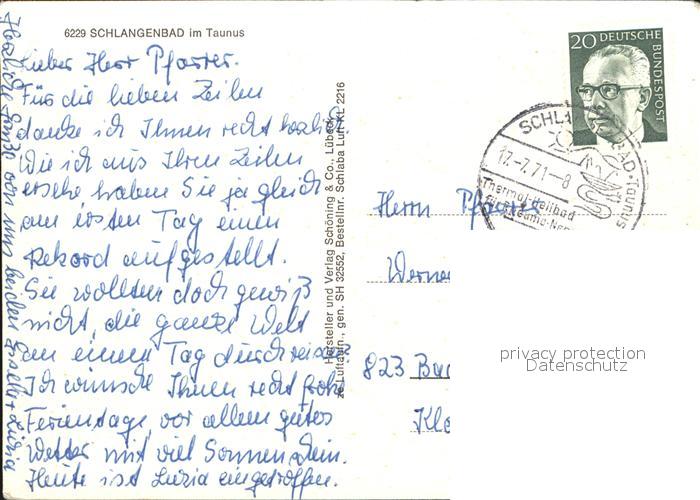 6229 SCHLANGENBAD im Taunus
Lieber Herr Pfarrer.
Für die lieben Zeilen
danke ich Ihnen recht herzlich.
Wie ich aus Ihren Zeilen
ersehe haben Sie ja gleich
am ersten Tag einen
Rekord aufgestellt.
Sie wollten doch gewiß
nicht, die ganze Welt
an einem Tag durchreisen?
Ich wünsche Ihnen recht frohe
Ferientage, vor allem gutes
Wetter mit viel Sonnenschein.
Heute ist Luzia eingetroffen.
Herzliche Grüße von uns beiden Gisella + Luzia
Hersteller und Verlag Schöning & Co., Lübeck
Luftaufn., gen. SH 32552, Bestellnr. Schlaba Luft KL 2216
20 DEUTSCHE
BUNDESPOST
SCHLANGENBAD-Taunus
12.-7.71-8
Thermal-Heilbad
für Rheuma-
Herrn Pfarrer
Werner
823
privacy protection
Datenschutz